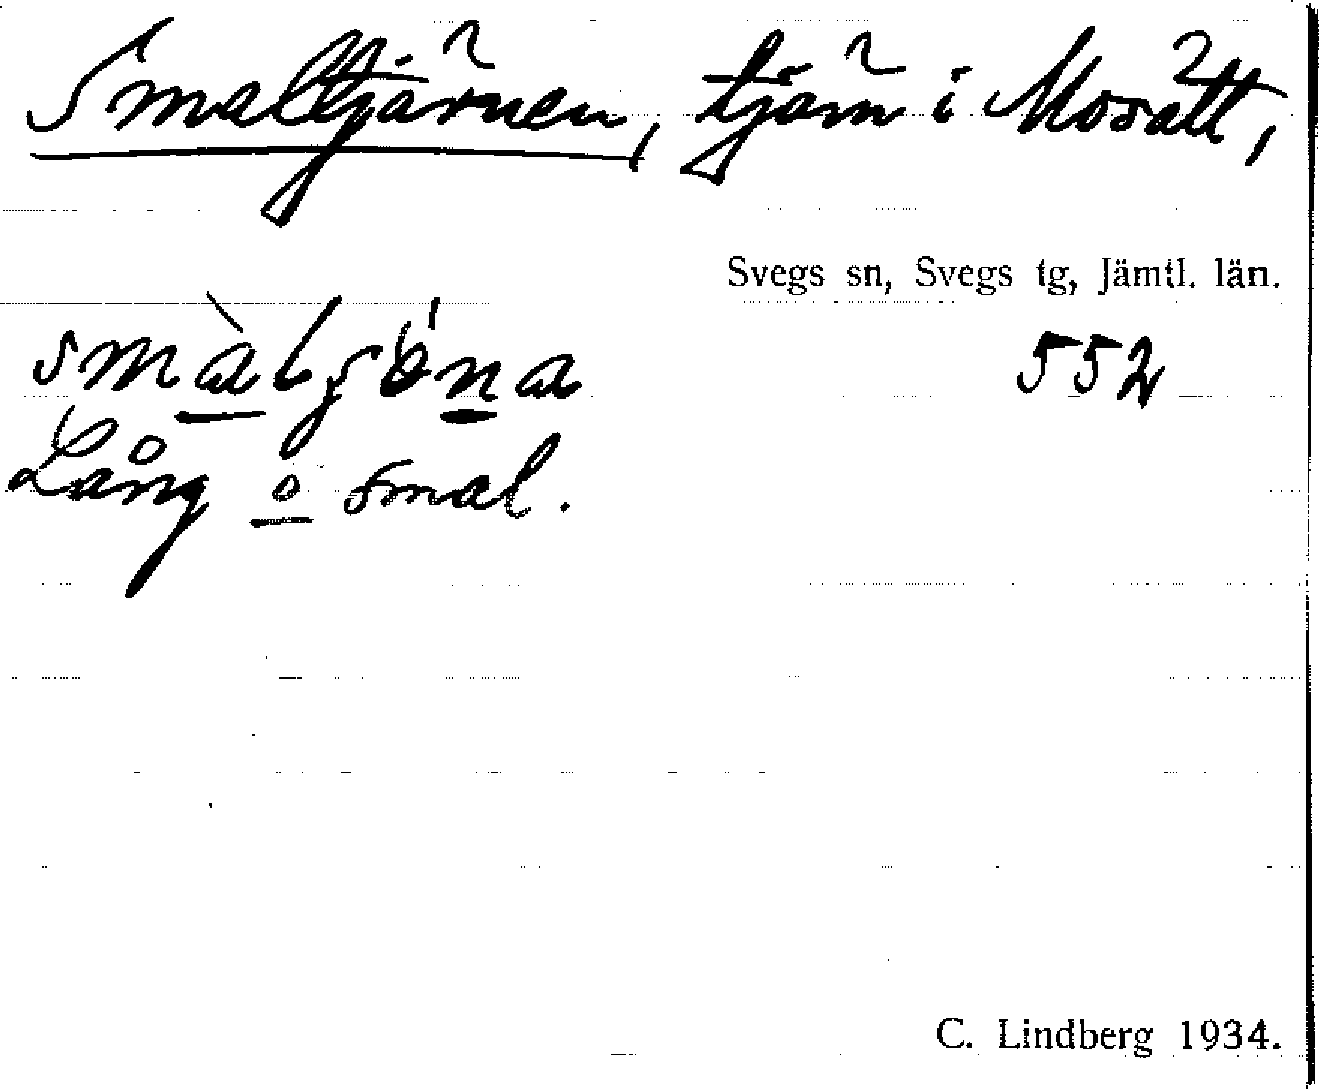 Smaltjärnen, tjärn i Mosätt,
Svegs sn, Svegs tg, Jämtl. län.
552
Lång o smal.
C. Lindberg 1934.